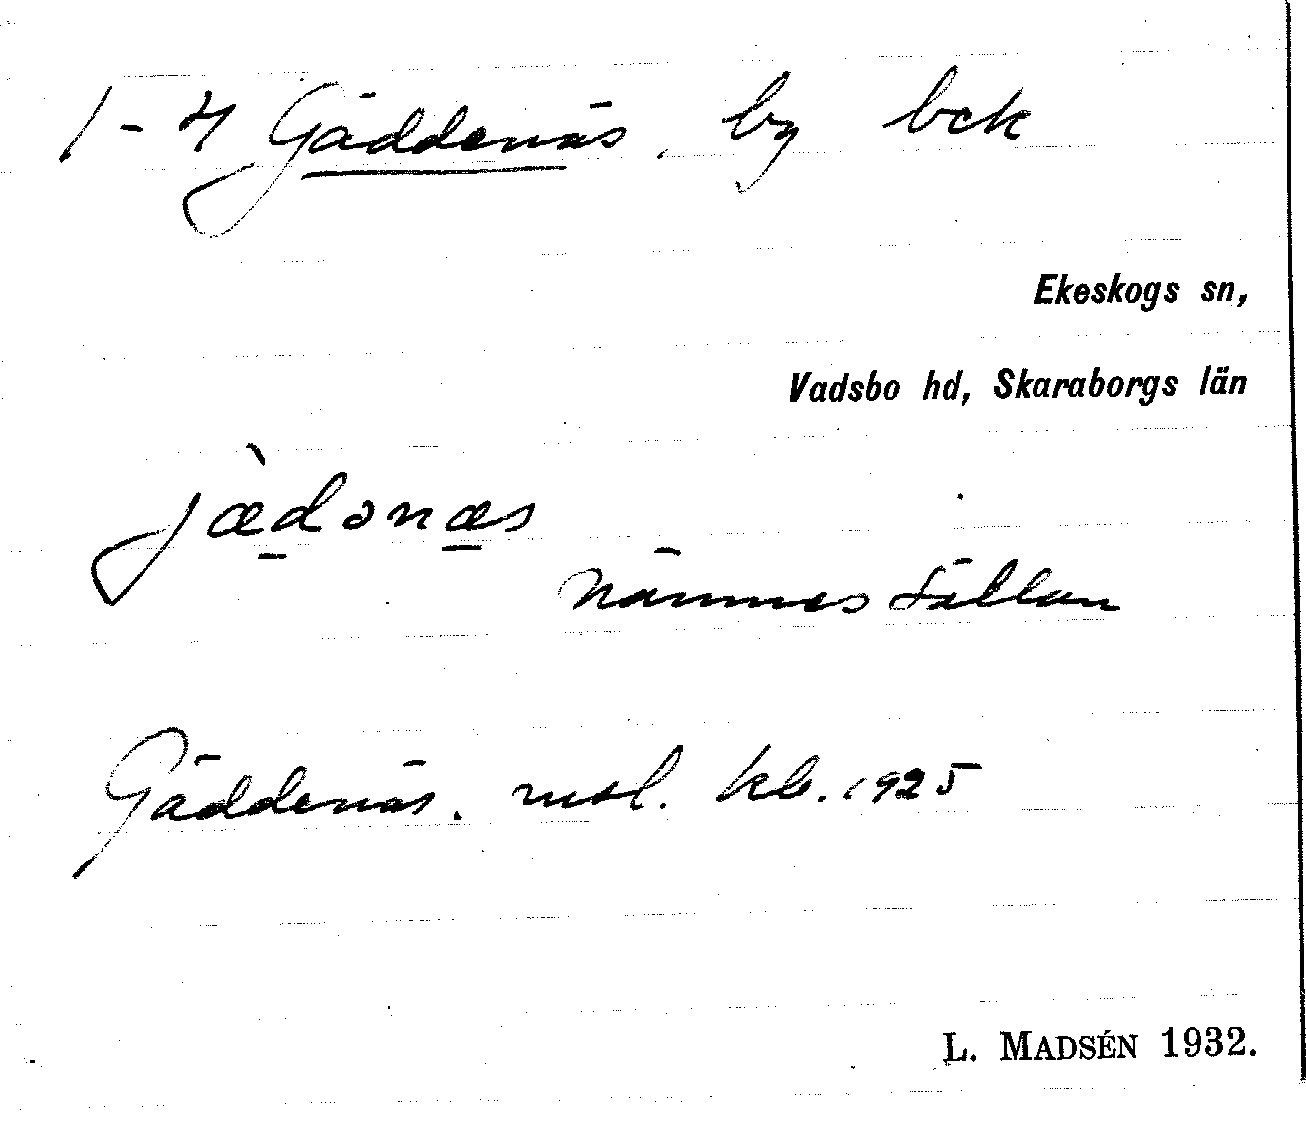 1-4 Gäddenäs, by bck
Ekeskogs sn,
Vadsbo hd, Skaraborgs län
jæ̀dənæs
nämnes sällan
Gäddenäs. mtl. kb. 1925
L. MADSÉN 1932.